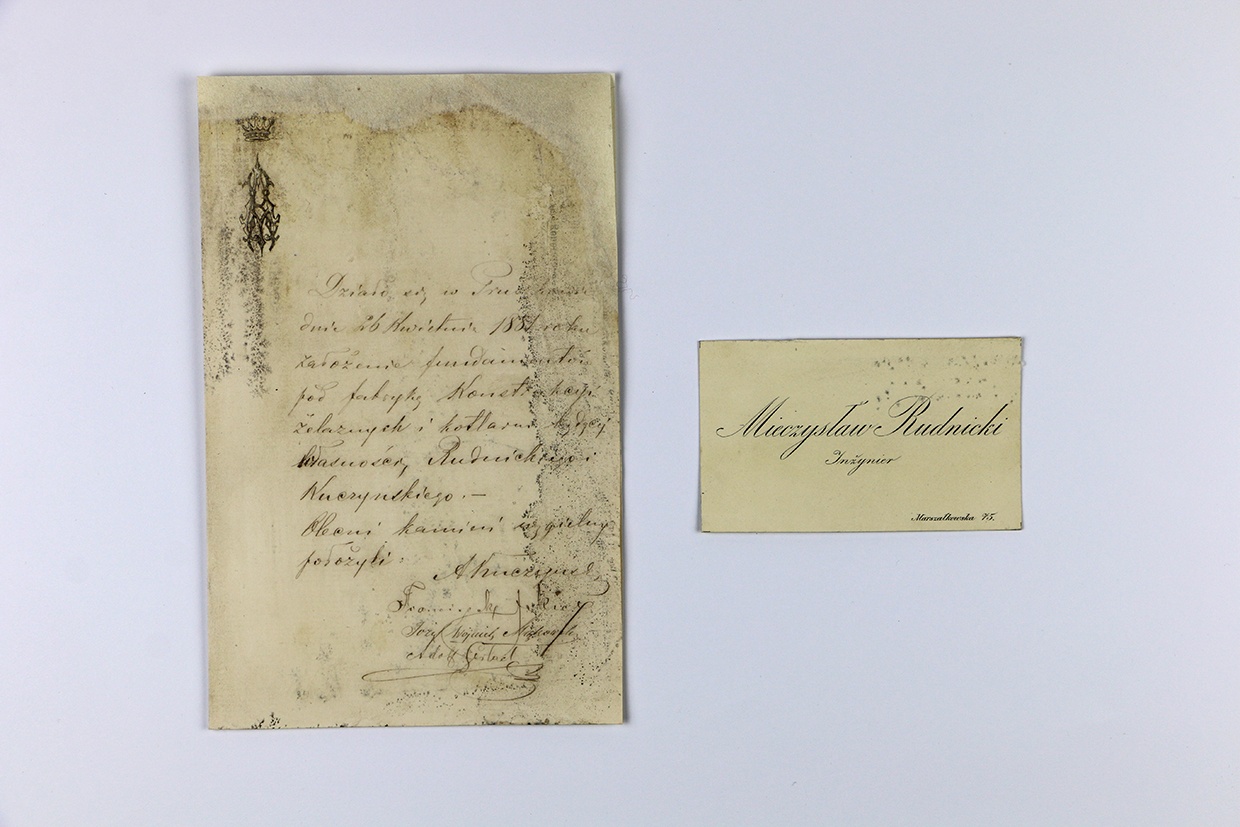 Działo się w
dnia 26 Kwietnia 18 roku
założenie fundamentów
pod fabrykę Konstrukcyi
żelaznych i kotlarni będący
własnością Rudnickiego i
Kuczynskiego. —
Obecni kamień węgielny
położyli:
AKuczynski
Józef Wojciech
Adolf
Mieczysław Rudnicki
Inżynier
Marszałkowska 75.